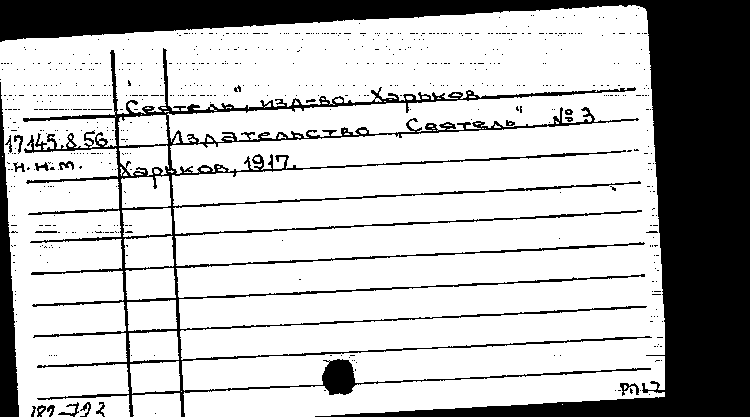 „Сеятель", изд-во. Харьков
17.145.8.56. Издательство „Сеятель" № 3
н.н.м. Харьков, 1917.